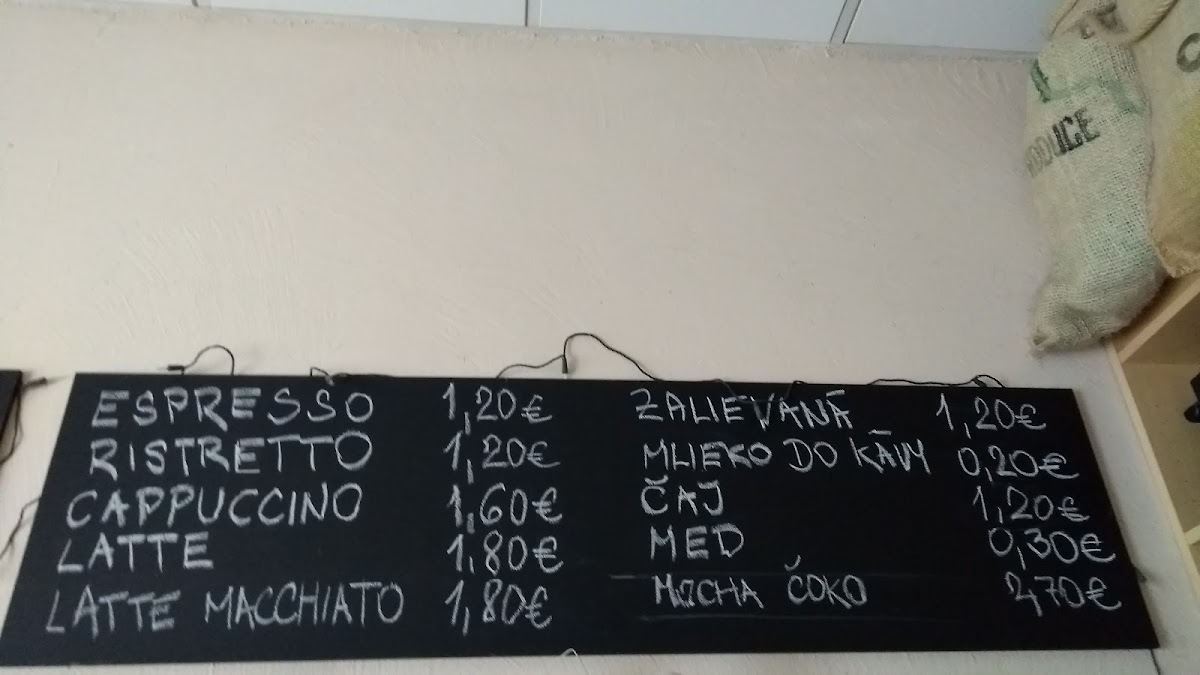 ESPRESSO 1,20€
RISTRETTO 1,20€
CAPPUCCINO 1,60€
LATTE 1,80€
LATTE MACCHIATO 1,80€
ZALIEVANÁ 1,20€
MLIEKO DO KÁVY 0,20€
ČAJ 1,20€
MED 0,30€
MOCHA ČOKO 2,70€